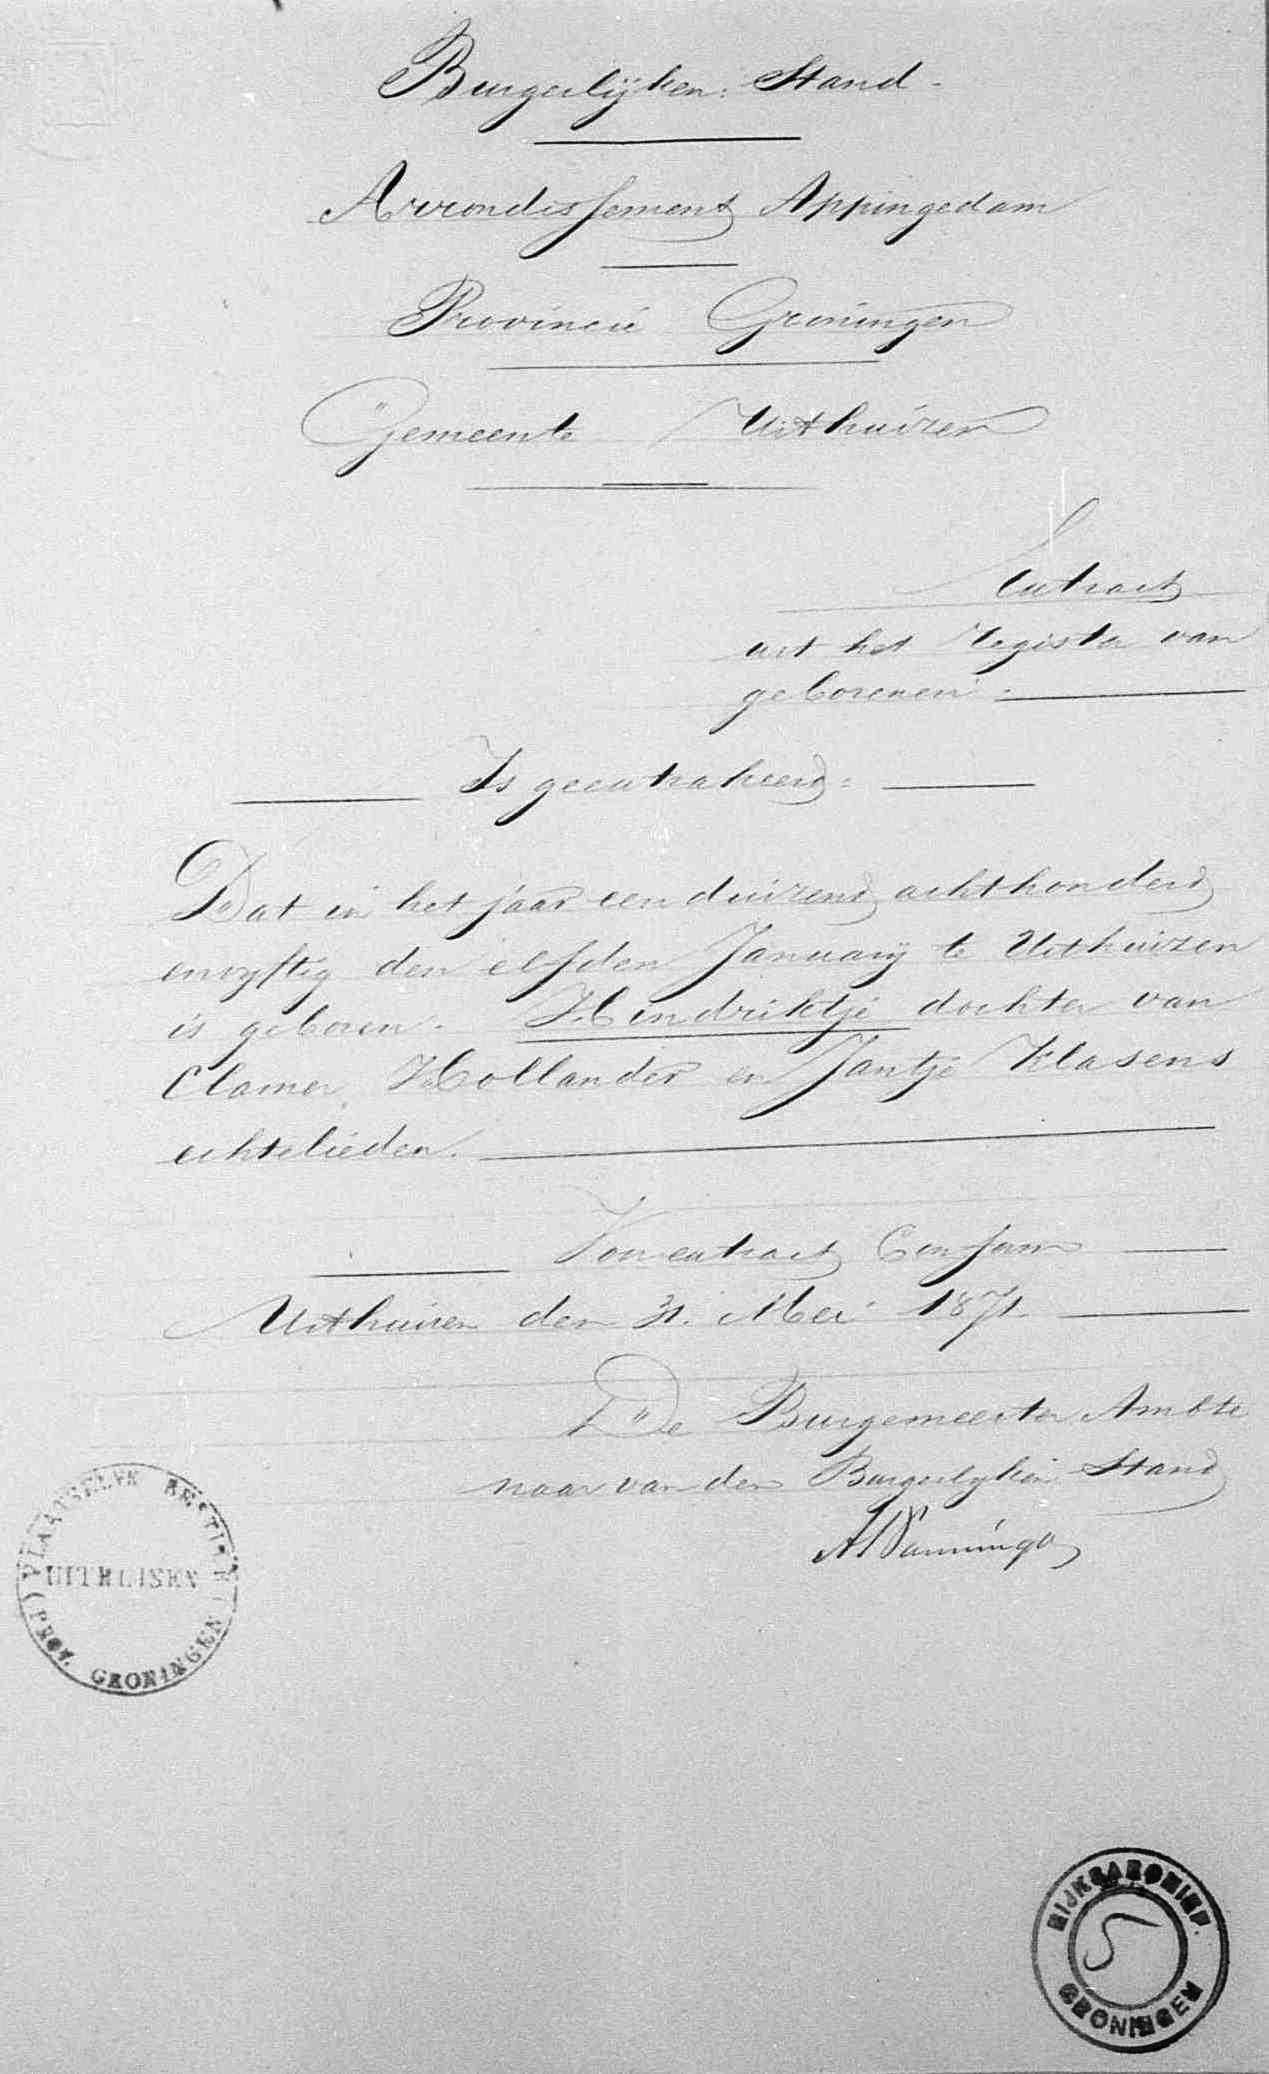 Burgerlijken Stand
Arrondissement Appingedam
Provincie Groningen
Gemeente Uithuizen
Extract
uit het Register van
geborenen.
Is geextraheerd:
Dat in het jaar een duizend achthonderd
envyftig den elfden Januarij te Uithuizen
is geboren. Hendriktje dochter van
Clamer Hollander en Jantje Klasens
echtelieden.
Voor extract Conform
Uithuizen den 31. Mei 1871.
De Burgemeester Ambte
naar van den Burgerlyken Stand
PLAATSELYK BESTUUR
UITHUISEN
(PROV. GRONINGEN)
RIJKSARCHIEF.
5
GRONINGEN